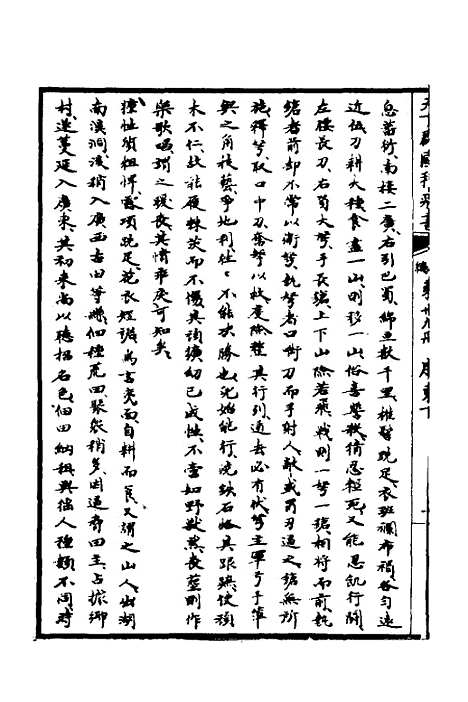 天下郡國利病書
息苗竹南接二廣右引巴蜀綿亘數千里椎髻跣足衣班斕布褐各勾遠
近伐刀耕火種食盡一山則移一山俗喜讐殺猜忍輕死又能忍飢行鬪
左腰長刀右荷大弩手長鎗上下山險若飛戰則一弩一鎗相將而前執
鎗者前却不常以衛弩執弩者口銜刀而手射人敵或冐刃逼之鎗無所
施釋弩取口中刀奮擊以救度險整其行列遁去必有伏弩主軍弓手輩
與之角技藝爭地利往往不能決勝也兒始能行燒鐵石烙其跟蹠使頑
木不仁故能履棘茨而不傷其頑獷幼已成性不啻如野獸然喪塟則作
樂歌唱謂之暖喪其情乖戾可知矣
獞性質粗悍露項跣足花衣短裙鴂舌夷面自耕而食又謂之山人出湖
南溪洞後稍入廣西古田等縣佃種荒田聚衆稍多因逼奪田主占據鄉
村遂蔓延入廣東其初來尚以聽招名色佃田納租與徭人種類不同時